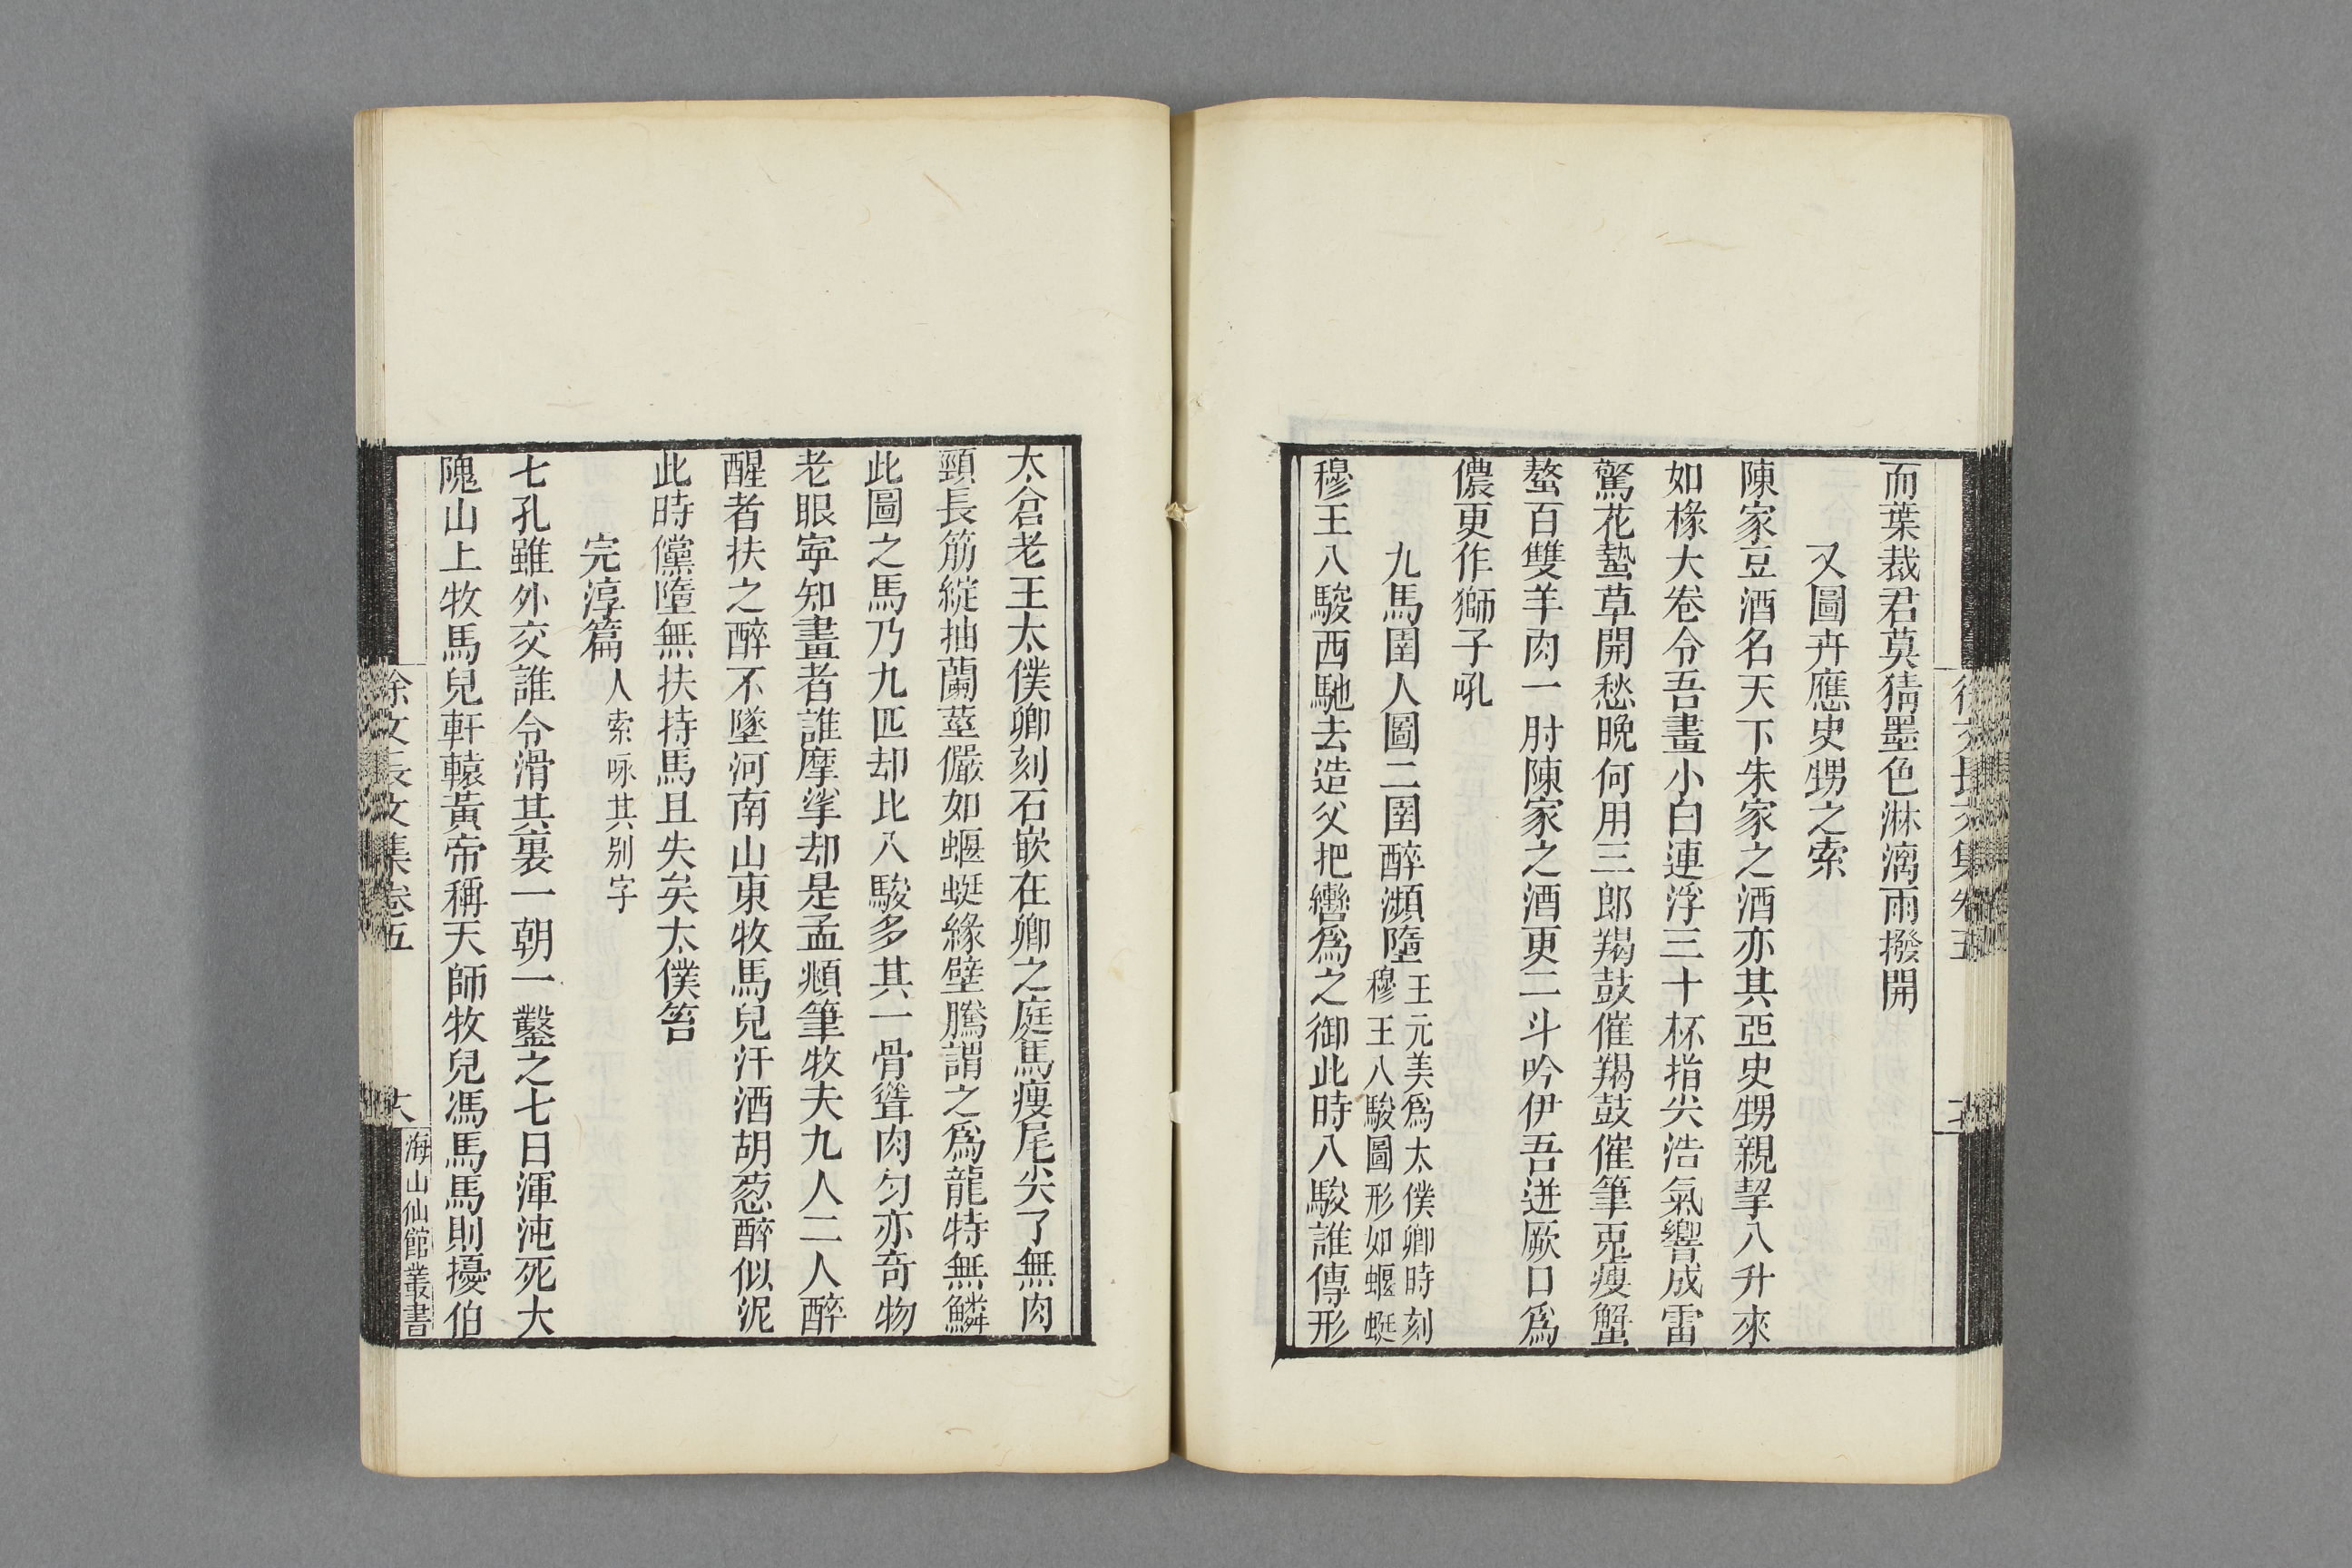 而葉裁君莫猜墨色淋漓雨撥開
又圖卉應史甥之索
陳家豆酒名天下朱家之酒亦其亞史甥親挈八升來
如椽大卷令吾畫小白連浮三十杯指尖浩氣響成雷
驚花蟄草開愁晚何用三郎羯鼓催羯鼓催筆兎瘦蟹
螯百雙羊肉一肘陳家之酒更二斗吟伊吾迸厥口爲
儂更作獅子吼
九馬圉人圖二圉醉瀕墮
王元美爲太僕卿時刻
穆王八駿圖形如蝘蜓
穆王八駿西馳去造父把轡爲之御此時八駿誰傳形
太倉老王太僕卿刻石嵌在卿之庭馬瘦尾尖了無肉
頸長筋綻抽蘭莖儼如蝘蜓緣壁騰謂之爲龍特無鱗
此圖之馬乃九匹却比八駿多其一骨聳肉匀亦奇物
老眼寧知畫者誰摩挲却是孟頫筆牧夫九人二人醉
醒者扶之醉不墜河南山東牧馬兒汗酒胡葱醉似泥
此時儻墮無扶持馬且失矣太僕笞
完淳篇人索咏其别字
七孔雖外交誰令滑其裏一朝一鑿之七日渾沌死大
隗山上牧馬兒軒轅黃帝稱天師牧兒馮馬馬則擾伯
徐文長文集卷五
六
海山仙館叢書